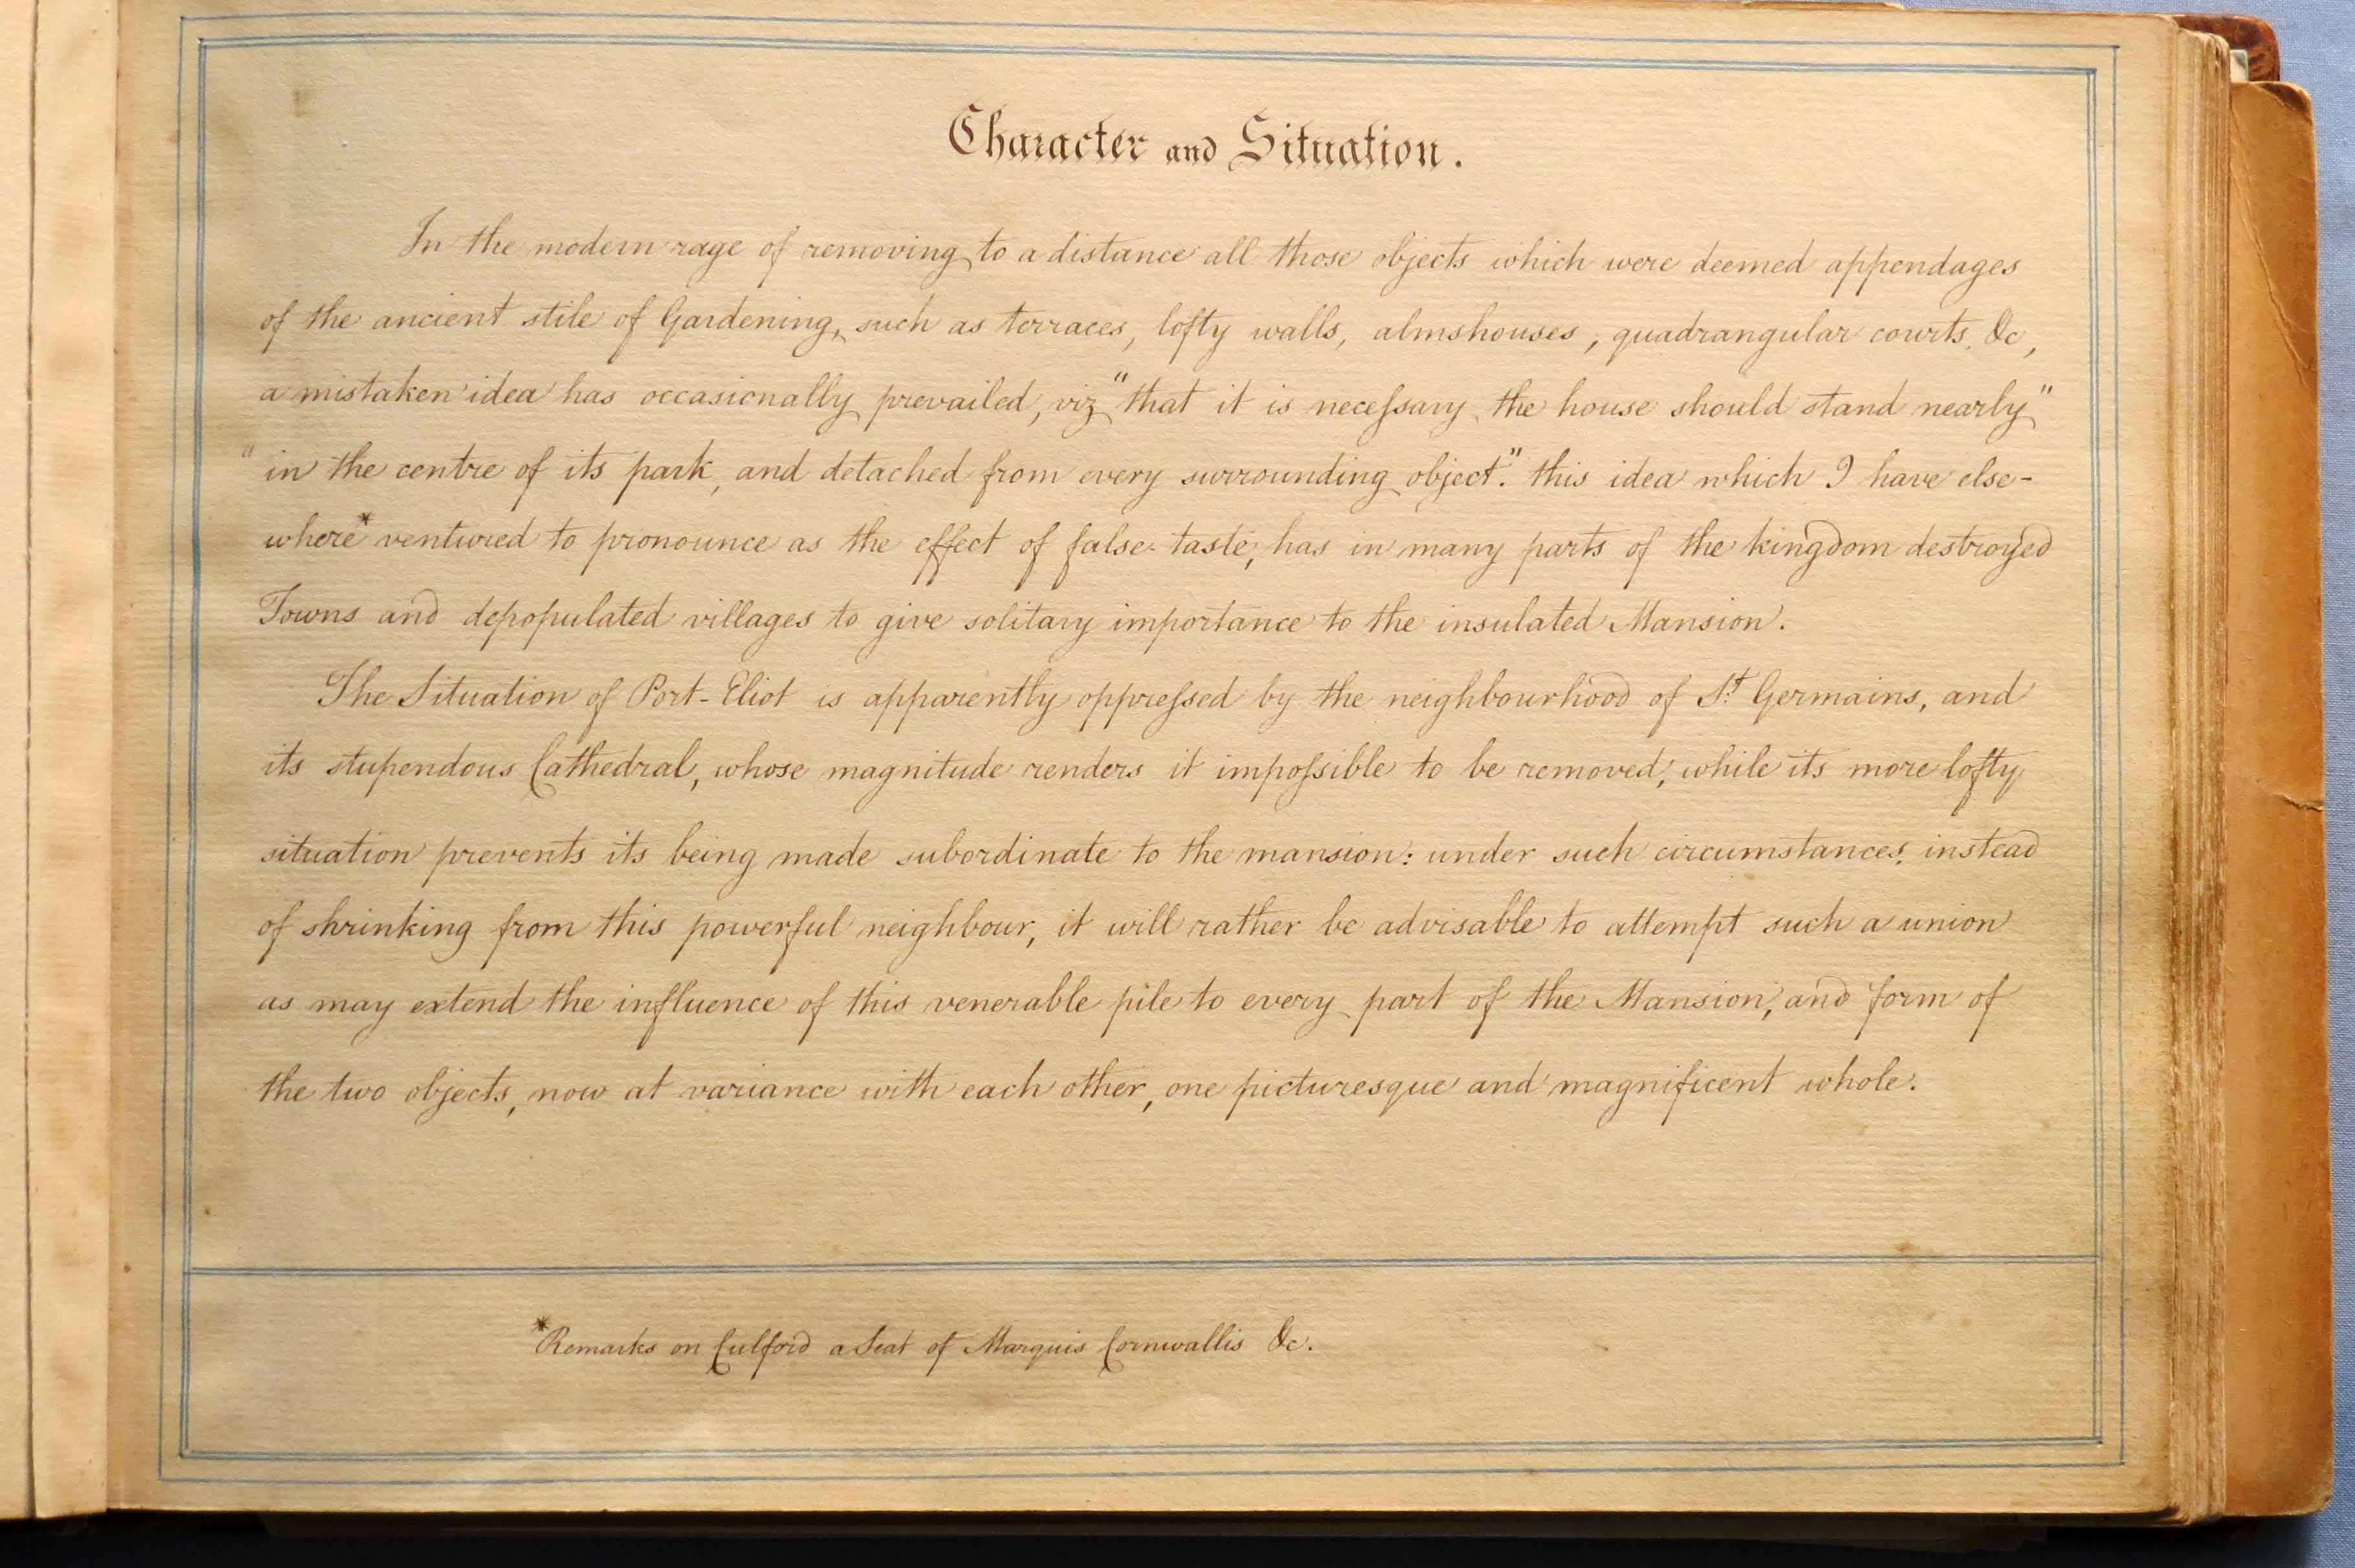 Character and Situation.
In the modern rage of removing to a distance all those objects which were deemed appendages
of the ancient stile of Gardening, such as terraces, lofty walls, almshouses, quadrangular courts, &c,
a mistaken idea has occasionally prevailed, viz "that it is neceſsary the house should stand nearly"
"in the centre of its park, and detached from every surrounding object". this idea which I have else-
where* ventured to pronounce as the effect of false taste, has in many parts of the kingdom destroyed
Towns and depopulated villages to give solitary importance to the insulated Mansion.
The Situation of Port-Eliot is apparently oppreſsed by the neighbourhood of St. Germains, and
its stupendous Cathedral, whose magnitude renders it impoſsible to be removed, while its more lofty
situation prevents its being made subordinate to the mansion: under such circumstances, instead
of shrinking from this powerful neighbour, it will rather be advisable to attempt such a union
as may extend the influence of this venerable pile to every part of the Mansion, and form of
the two objects, now at variance with each other, one picturesque and magnificent whole.
*Remarks on Culford a Seat of Marquis Cornwallis &c.